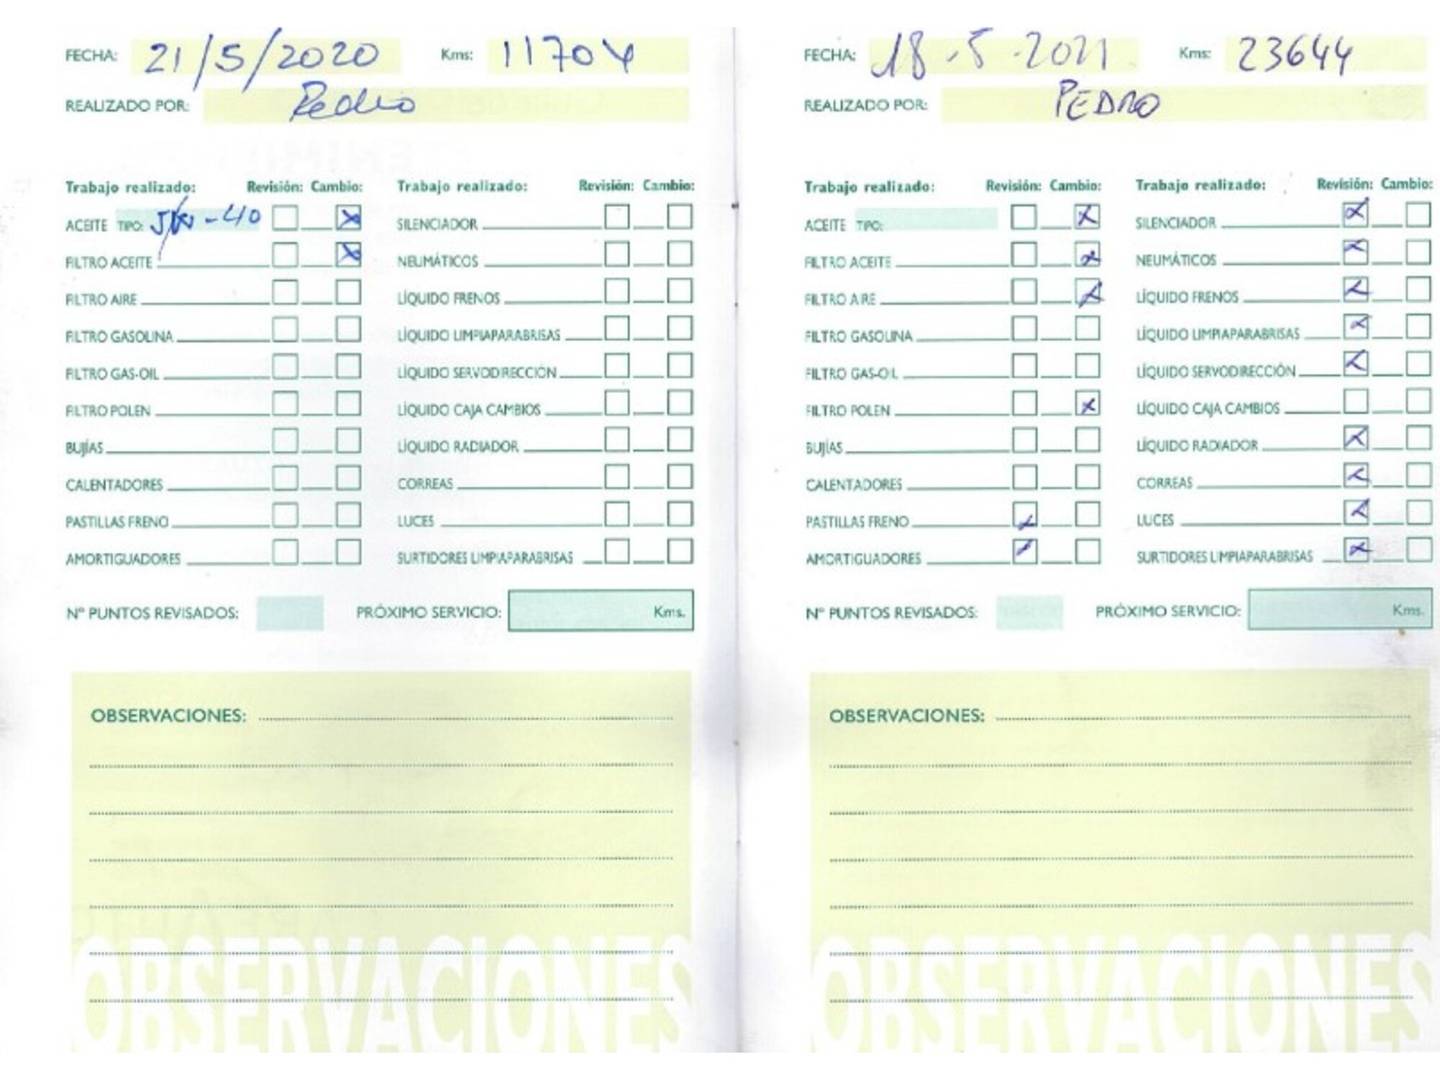 FECHA: 21/5/2020 Kms: 11704
REALIZADO POR: Pedro
Trabajo realizado: Revisión: Cambio: Trabajo realizado: Revisión: Cambio:
ACEITE TIPO: 5W-40 SILENCIADOR
FILTRO ACEITE NEUMÁTICOS
FILTRO AIRE LÍQUIDO FRENOS
FILTRO GASOLINA LÍQUIDO LIMPIAPARABRISAS
FILTRO GAS-OIL LÍQUIDO SERVODIRECCIÓN
FILTRO POLEN LÍQUIDO CAJA CAMBIOS
BUJÍAS LÍQUIDO RADIADOR
CALENTADORES CORREAS
PASTILLAS FRENO LUCES
AMORTIGUADORES SURTIDORES LIMPIAPARABRISAS
Nº PUNTOS REVISADOS: PRÓXIMO SERVICIO: Kms.
OBSERVACIONES:
OBSERVACIONES
FECHA: 18-5-2021 Kms: 23644
REALIZADO POR: PEDRO
Trabajo realizado: Revisión: Cambio: Trabajo realizado: Revisión: Cambio:
ACEITE TIPO: SILENCIADOR
FILTRO ACEITE NEUMÁTICOS
FILTRO AIRE LÍQUIDO FRENOS
FILTRO GASOLINA LÍQUIDO LIMPIAPARABRISAS
FILTRO GAS-OIL LÍQUIDO SERVODIRECCIÓN
FILTRO POLEN LÍQUIDO CAJA CAMBIOS
BUJÍAS LÍQUIDO RADIADOR
CALENTADORES CORREAS
PASTILLAS FRENO LUCES
AMORTIGUADORES SURTIDORES LIMPIAPARABRISAS
Nº PUNTOS REVISADOS: PRÓXIMO SERVICIO: Kms.
OBSERVACIONES:
OBSERVACIONES